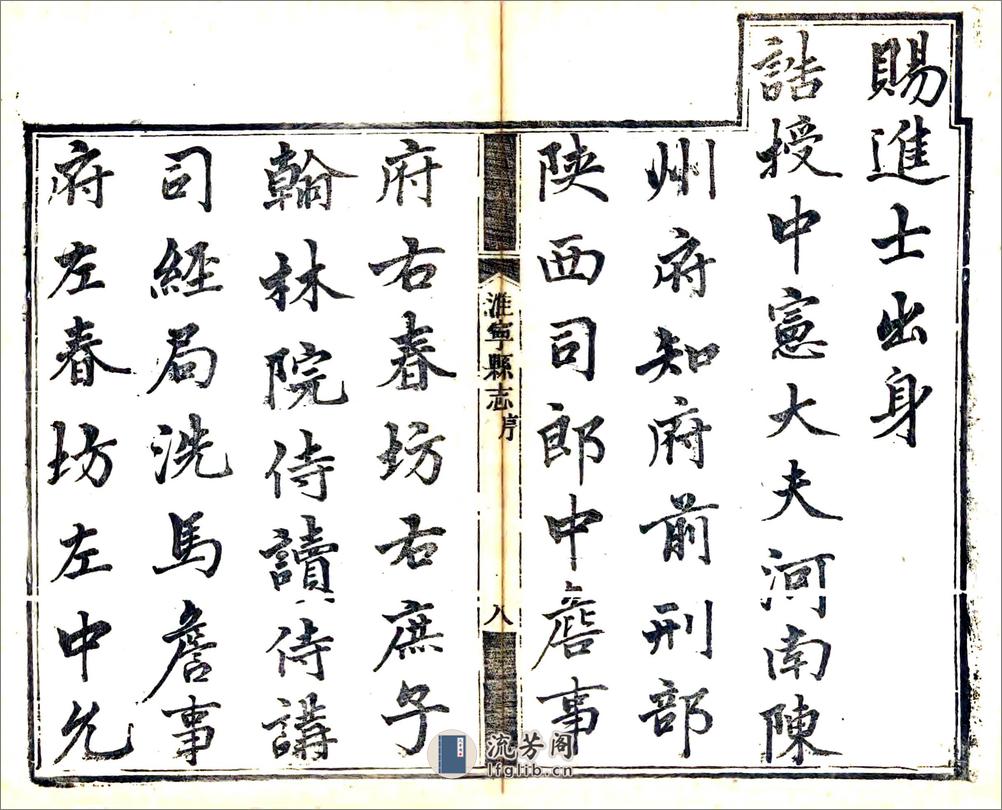 賜進士出身
誥授中憲大夫河南陳
州府知府前刑部
陝西司郎中詹事
淮寧縣志
序
八
府右春坊右庶子
翰林院侍讀侍講
司經局洗馬詹事
府左春坊左中允
流芳阁
lfglib.cn